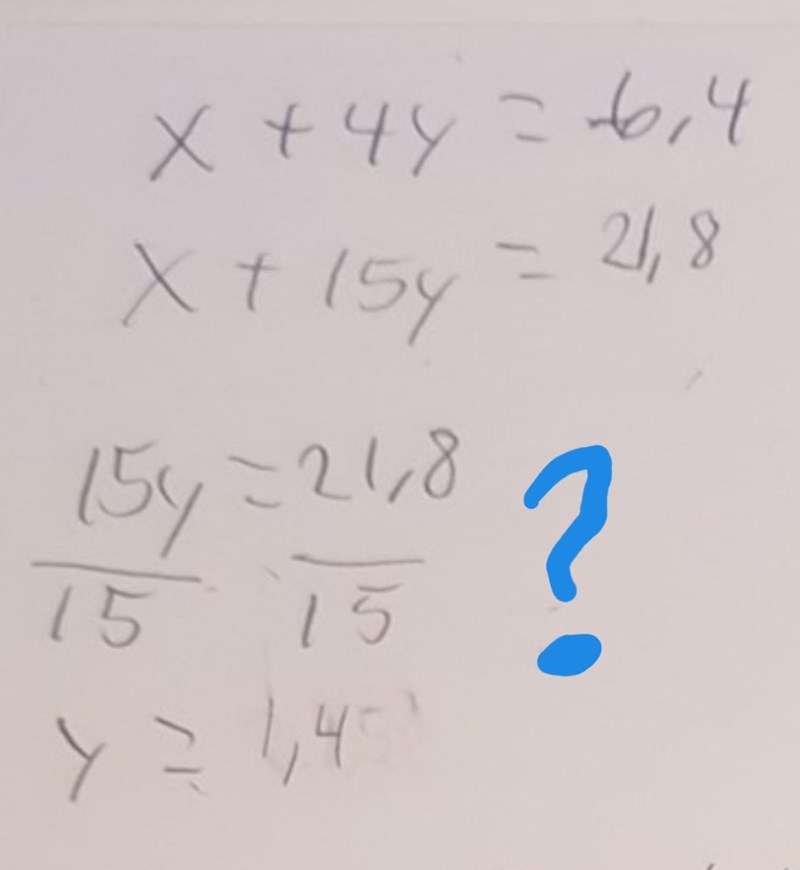 x + 4y = 6,4
x + 15y = 21,8
15y = 21,8
15 15
y = 1,45
?